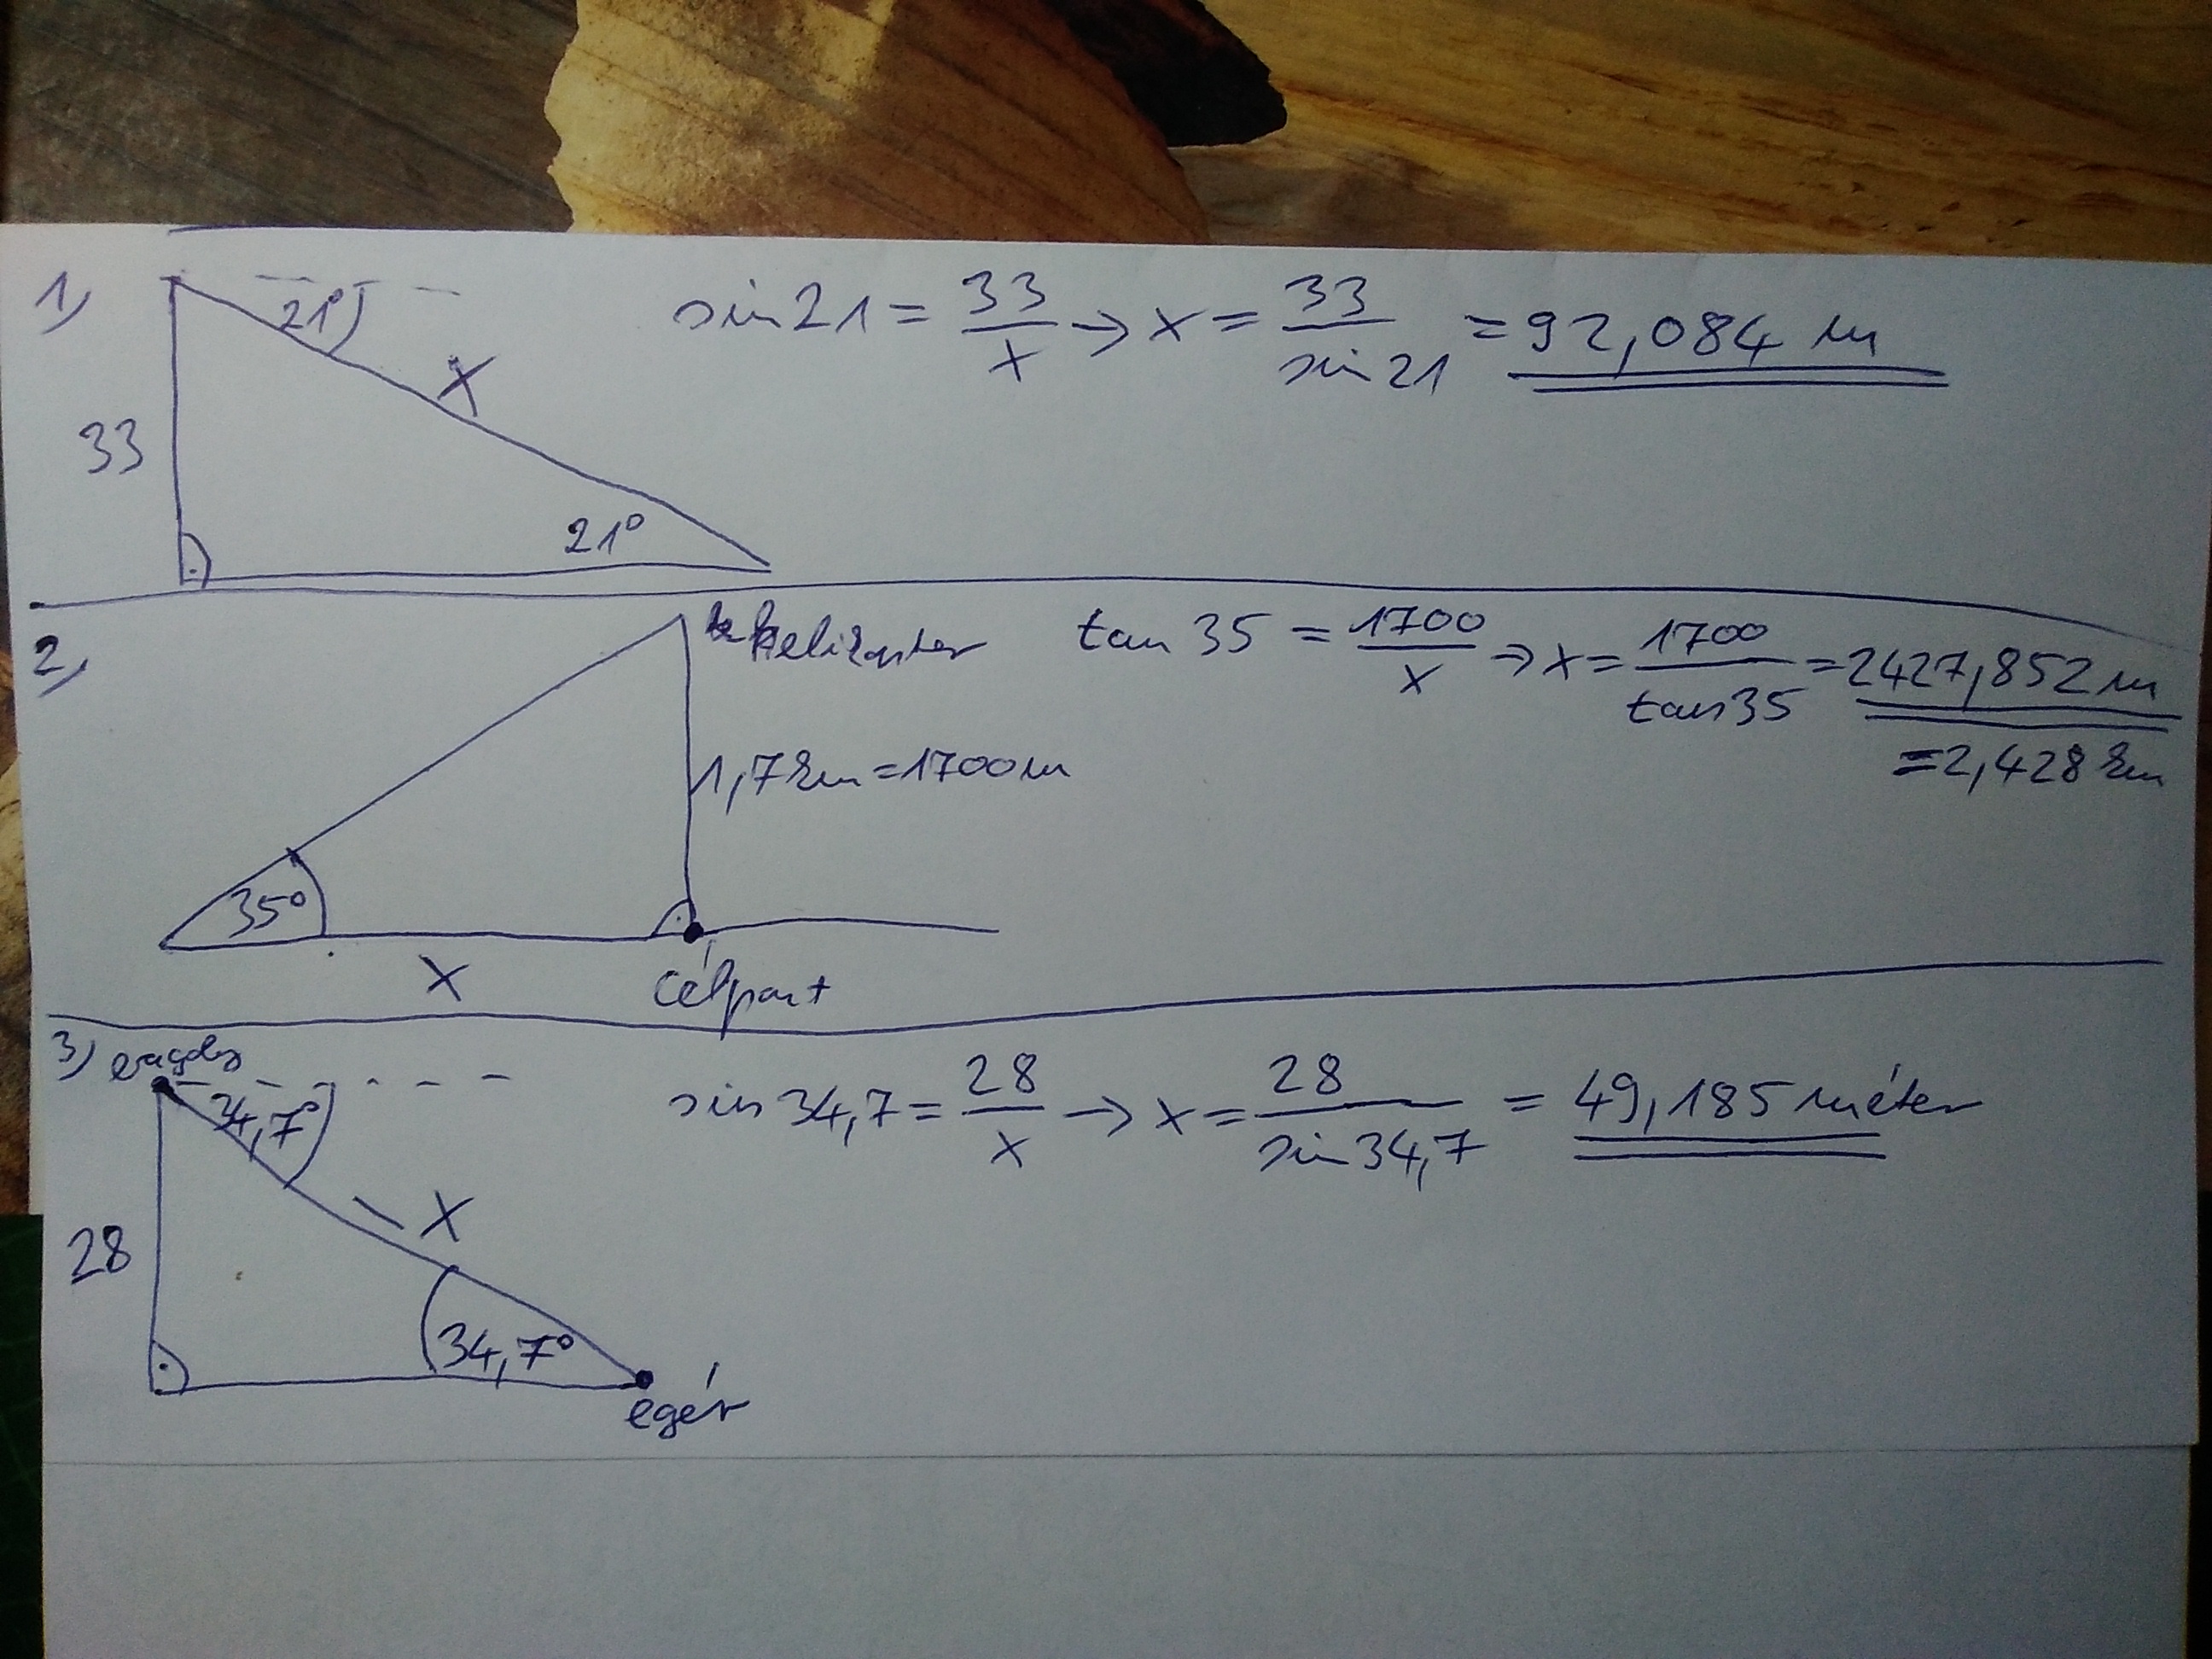 1)
21°
x
33
21°
sin 21 = 33/x → x = 33/sin 21 = 92,084 m
2,
helikopter
tan 35 = 1700/x → x = 1700/tan 35 = 2427,852 m
= 2,428 km
1,7 km = 1700 m
35°
x
célpont
3)
34,7°
sin 34,7 = 28/x → x = 28/sin 34,7 = 49,185 méter
x
28
34,7°
egér